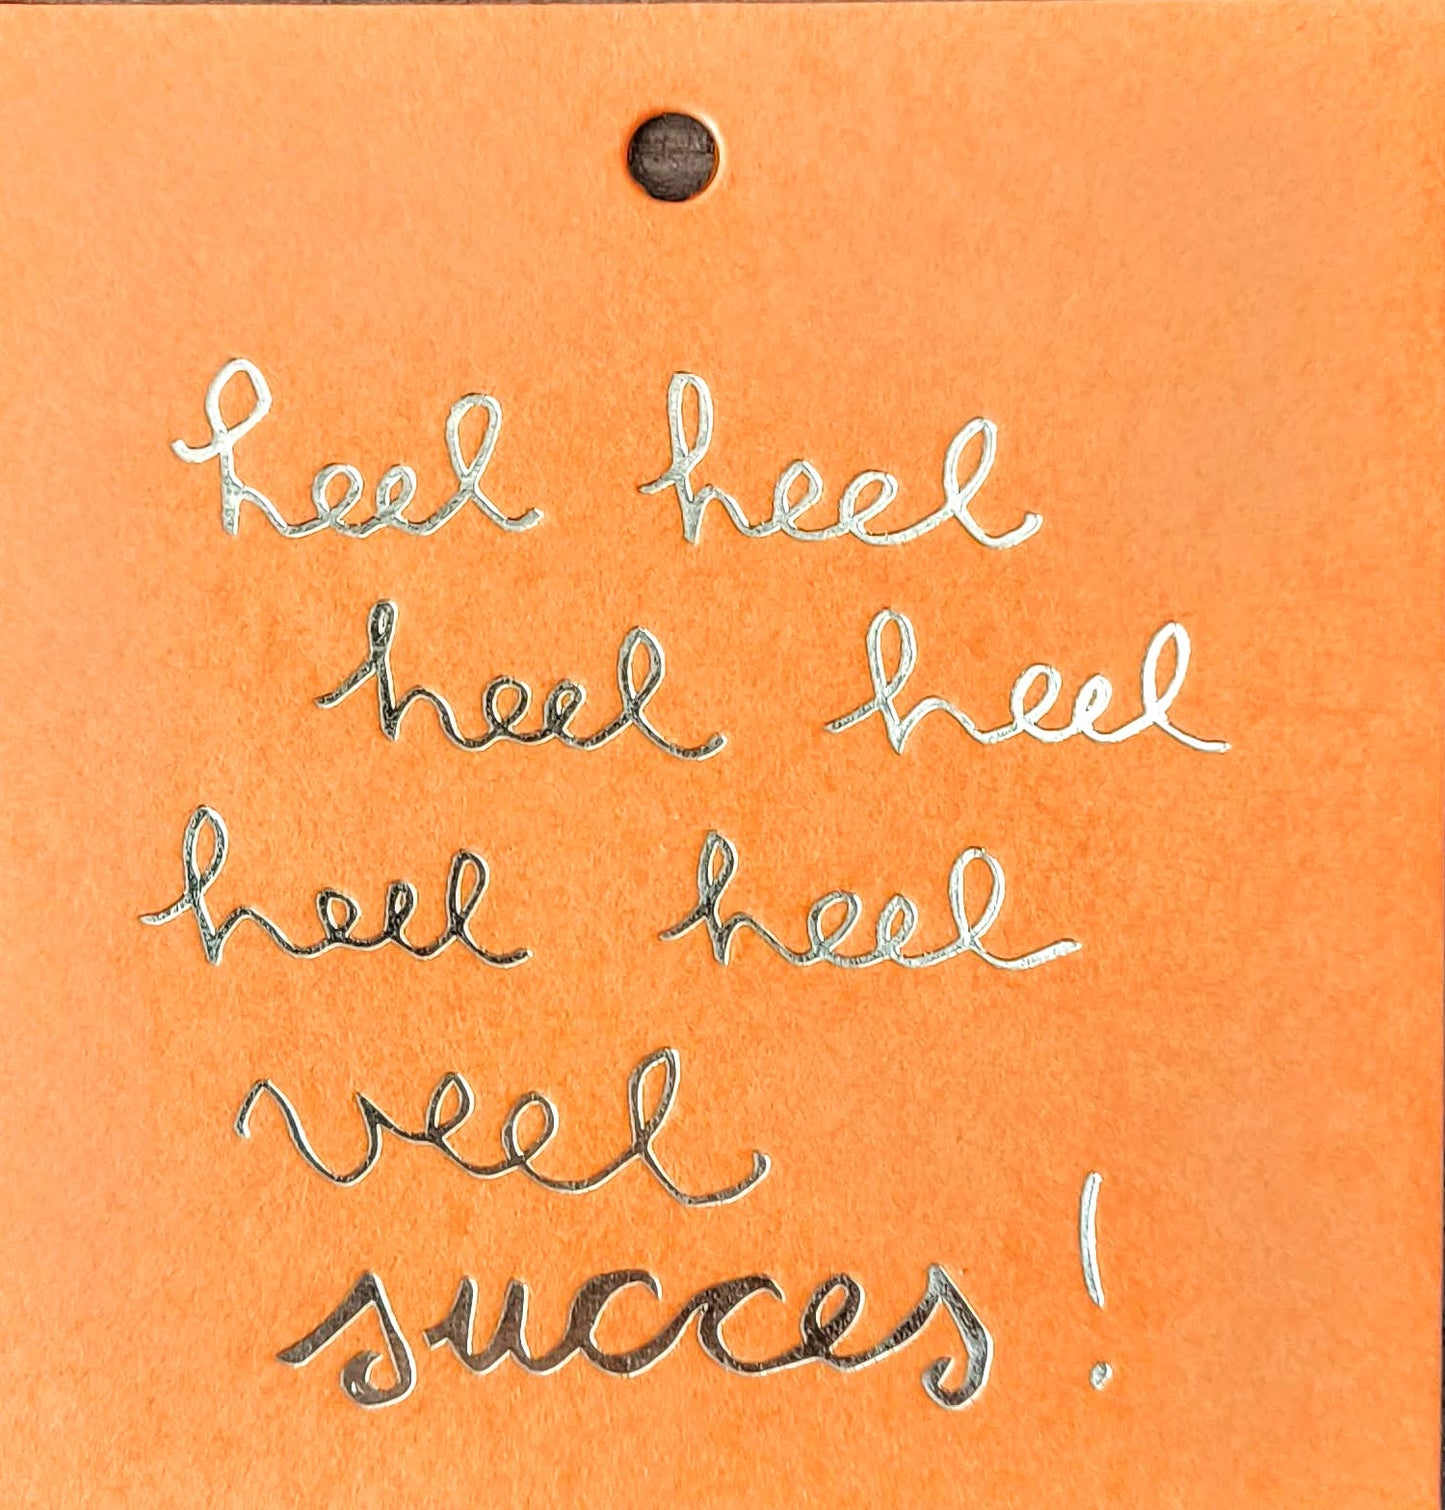 heel heel
heel heel
heel heel
veel
succes!